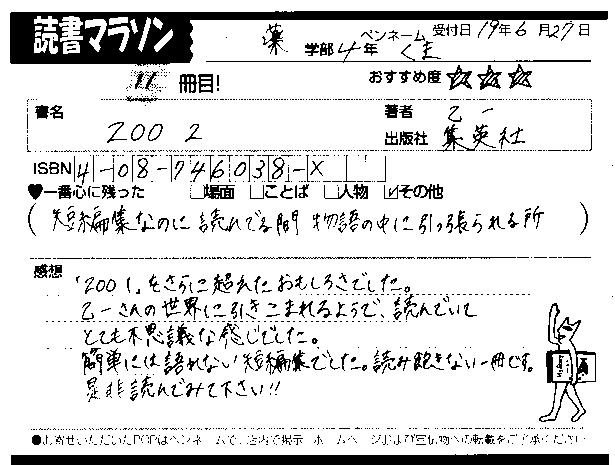 読書マラソン
薬 学部 4年 ペンネーム くま 受付日 19年6月27日
11 冊目! おすすめ度 ☆☆☆
書名 ZOO 2
著者 乙一
出版社 集英社
ISBN 4-08-746038-X
♥一番心に残った □場面 □ことば □人物 ☑その他
(短編集なのに読んでる間 物語の中に引っ張られる所)
感想
「ZOO1」をさらに超えたおもしろさでした。
乙一さんの世界に引きこまれるようで、読んでいて
とても不思議な感じでした。
簡単には語れない短編集でした。読み飽きない一冊です。
是非読んでみて下さい!!
●お寄せいただいたPOPはペンネームで、店内で掲示・ホームページおよび宣伝物への転載をご了承ください